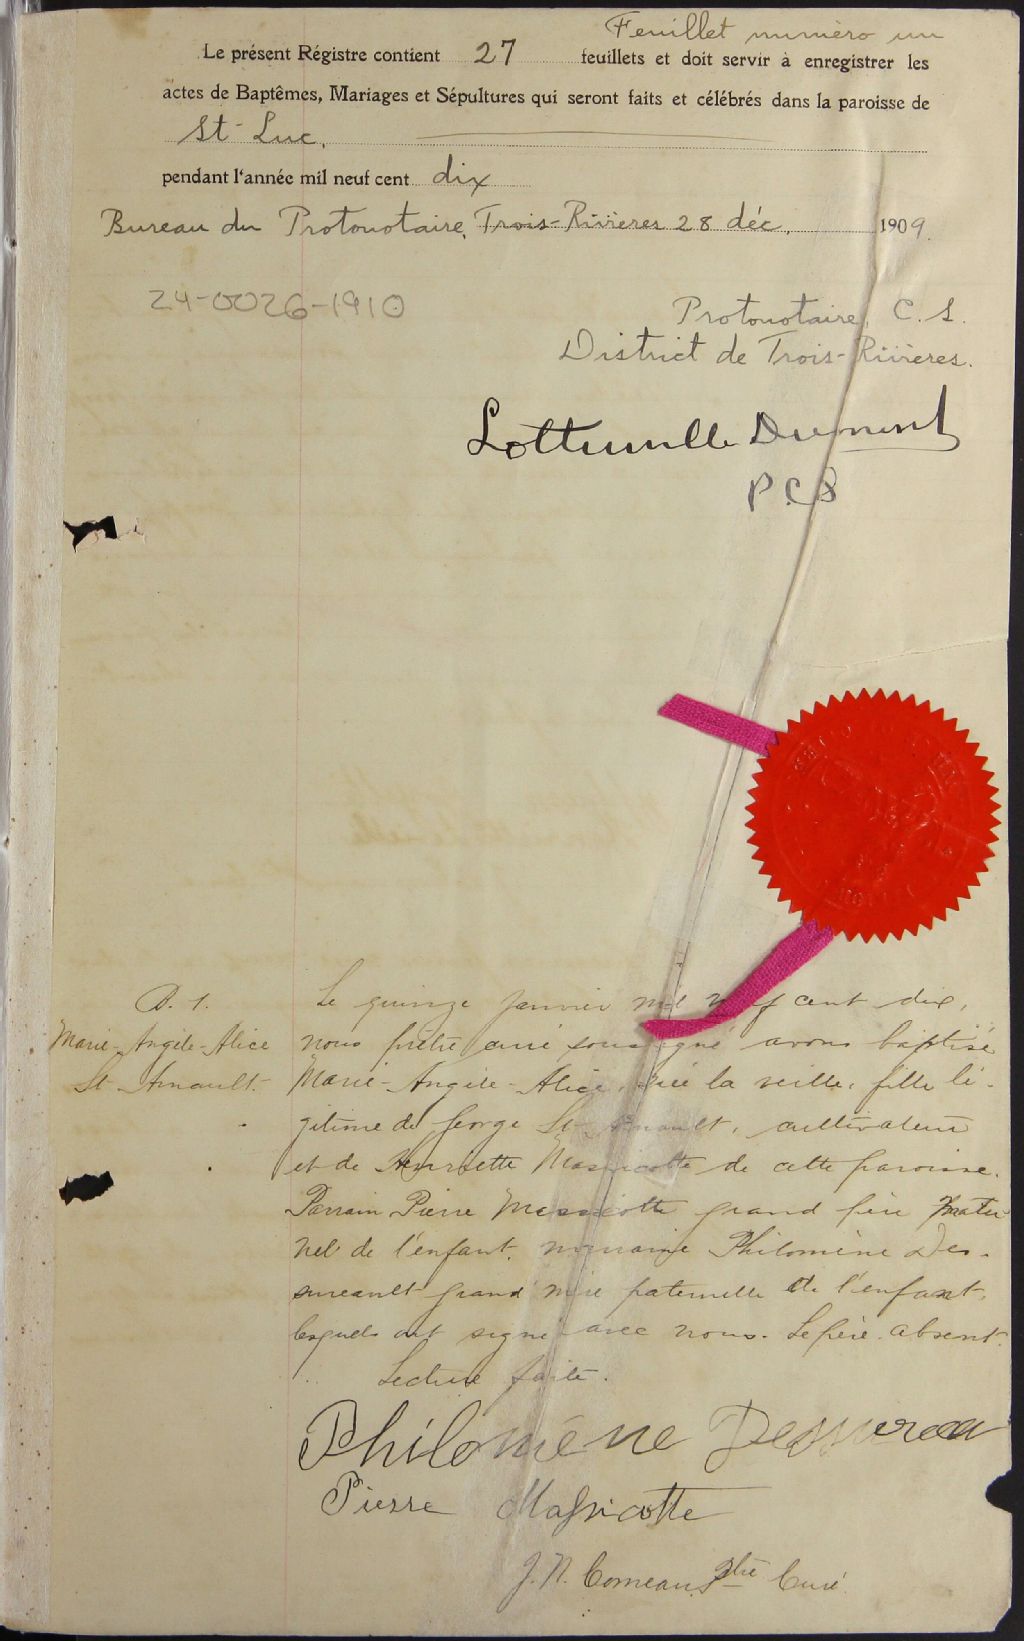 Feuillet numéro un
Le présent Régistre contient 27 feuillets et doit servir à enregistrer les
actes de Baptêmes, Mariages et Sépultures qui seront faits et célébrés dans la paroisse de
St-Luc.
pendant l'année mil neuf cent dix
Bureau du Protonotaire, Trois-Rivières 28 déc. 1909.
24-0026-1910
Protonotaire, C. S.
District de Trois-Rivières.
P C S
B. 1.
Marie-Angèle-Alice
St-Arnault
Le quinze janvier mil neuf cent dix,
nous prêtre curé soussigné avons baptisé
Marie-Angèle-Alice, née la veille, fille lé-
gitime de George St-Arnault, cultivateur
et de Henriette Massicotte de cette paroisse.
Parrain Pierre Massicotte grand père mater
nel de l'enfant, marraine Philomène Des-
sureault grand mère paternelle de l'enfant,
lesquels ont signé avec nous. Le père absent.
Lecture faite.
Philomène Dessureau
Pierre Massicotte
J. N. Comeau, Ptre Curé.